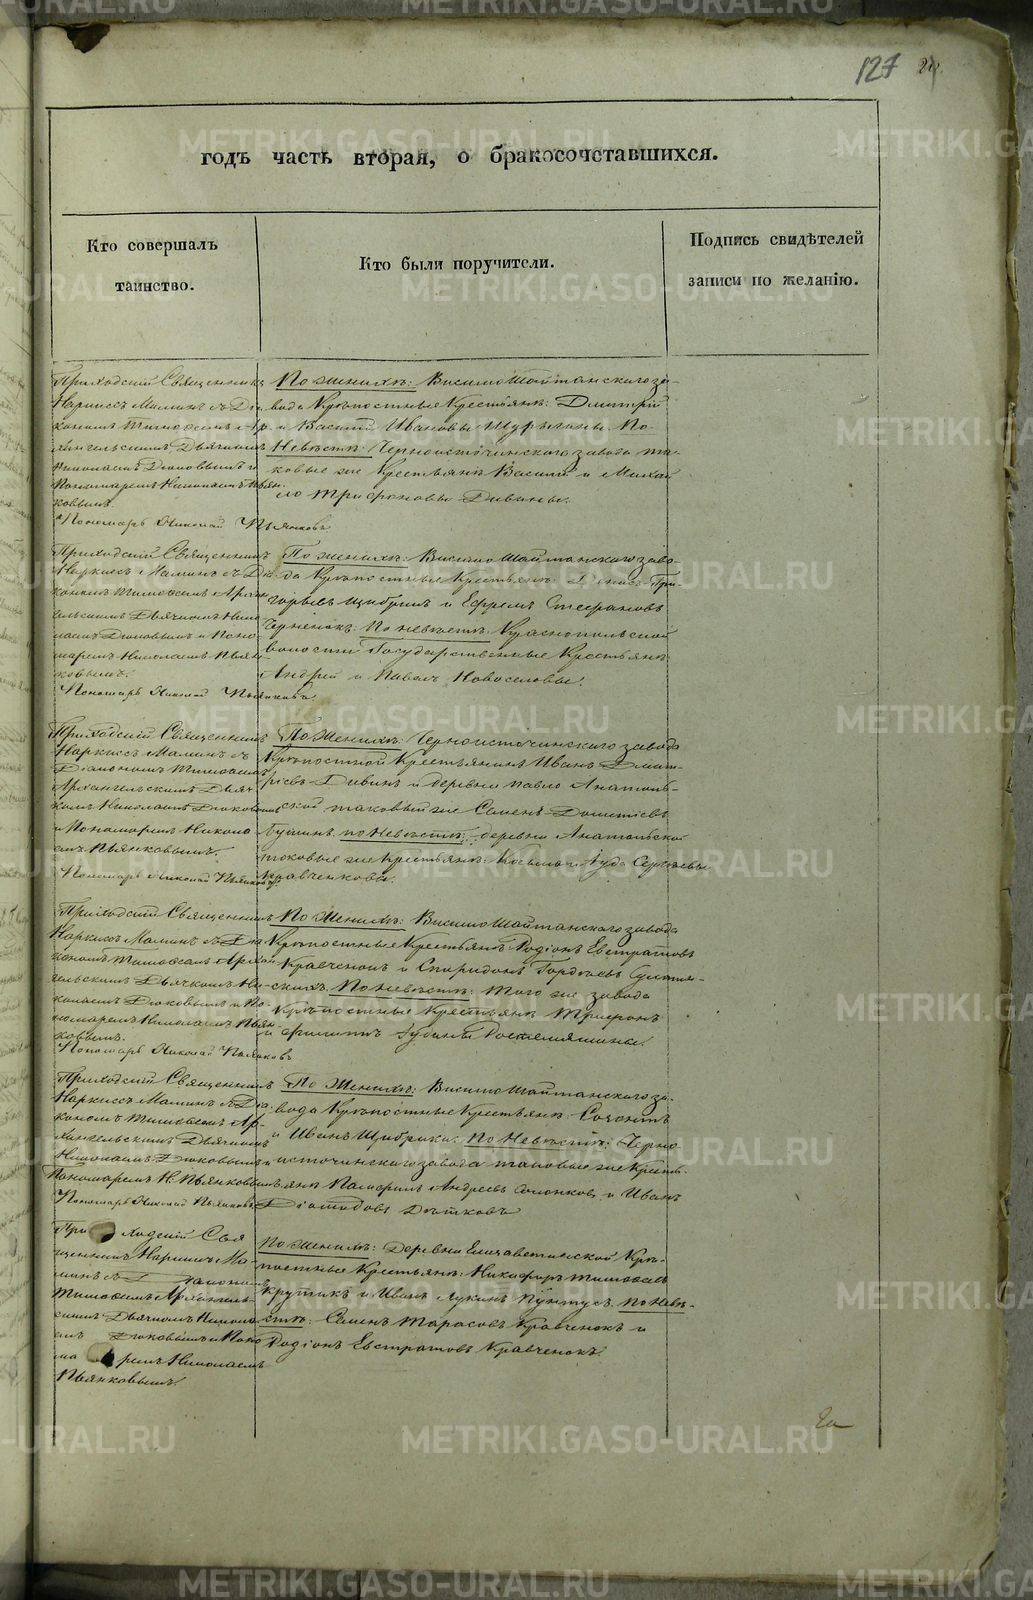 127
годъ часть вторая, о бракосочетавшихся.
Кто совершалъ
таинство.
Кто были поручители.
Подпись свидѣтелей
записи по желанію.
Приходскій Священникъ
Наркисъ Маминъ съ Діа-
кономъ Тимофеемъ Ар-
хангельскимъ Дьячкомъ
Николаемъ Дюковымъ и
Пономаремъ Николаемъ Пьян-
ковымъ.
Пономарь Николай Пьянковъ
По женихѣ: Висимо Шайтанскаго за-
вода Крѣпостные Крестьяне: Дмитрій
и Василій Ивановы Шурыгины. По
Невѣстѣ: Черноисточинскаго завода та-
ковые же Крестьяне Василій и Михай
ло Трифоновы Дивины.
Приходскій Священникъ
Наркисъ Маминъ съ Діа-
кономъ Тимофеемъ Архан
гельскимъ Дьячкомъ Нико
лаемъ Дюковымъ и Поно-
маремъ Николаемъ Пьян-
ковымъ.
Пономарь Николай Пьянковъ
По женихѣ: Висимо Шайтанскаго заво-
да Крѣпостные Крестьяне: Денисъ Гри
горьевъ и Ефремъ Стефановъ
Черненокъ: По невѣстѣ: Краснопольской
волости Государственные Крестьяне
Андрей и Павелъ Новоселовы.
Приходскій Священникъ
Наркисъ Маминъ съ
Діакономъ Тимофеемъ
Архангельскимъ Дьяч-
комъ Николаемъ Дюковымъ
и Пономаремъ Никола-
емъ Пьянковымъ.
Пономарь Николай Пьянковъ
По Женихѣ: Черноисточинскаго завода
Крѣпостной Крестьянинъ Иванъ Дмит-
ріевъ Дивинъ и деревни Павло Анатоль-
ской таковый же Семенъ
по Невѣстѣ: деревни Анатольской
таковые же Крестьяне: Косьма и Іуда Сергѣевы
Кравченковы.
Приходскій Священникъ
Наркисъ Маминъ съ Діа
кономъ Тимофеемъ Архан
гельскимъ Дьячкомъ Ни-
колаемъ Дюковымъ и По-
номаремъ Николаемъ Пьян-
ковымъ.
Пономарь Николай Пьянковъ
По Женихѣ: Висимо Шайтанскаго завода
Крѣпостные Крестьяне Родіонъ Евстратовъ
Кравченокъ и Спиридонъ Гордѣевъ
По Невѣстѣ: того же завода
Крѣпостные Крестьяне Трифонъ
и Филиппъ Губины
Приходскій Священникъ
Наркисъ Маминъ съ Діа-
кономъ Тимофеемъ Ар-
хангельскимъ Дьячкомъ
Николаемъ Дюковымъ и
Пономаремъ Н. Пьянковымъ
Пономарь Николай Пьянковъ
По Женихѣ: Висимо Шайтанскаго за-
вода Крѣпостные Крестьяне Созонтъ
и Иванъ По Невѣстѣ: Черно
источинскаго завода таковые же Кресть-
яне Андреевъ и Иванъ
Діомидовъ
При ходскій Свя
щенникъ Наркисъ Ма-
минъ съ Діакономъ
Тимофеемъ Архангель-
скимъ Дьячкомъ Никола
емъ Дюковымъ и Поно
ма ремъ Николаемъ
Пьянковымъ.
По Женихѣ: Деревни Елизаветинской Крѣ-
постные Крестьяне: Никифоръ Тимофеевъ
Крутикъ и Иванъ Лукинъ Пунтусъ. По Невѣ-
стѣ: Семенъ Тарасовъ Кравченокъ и
Родіонъ Евстратовъ Кравченокъ.
METRIKI.GASO-URAL.RU